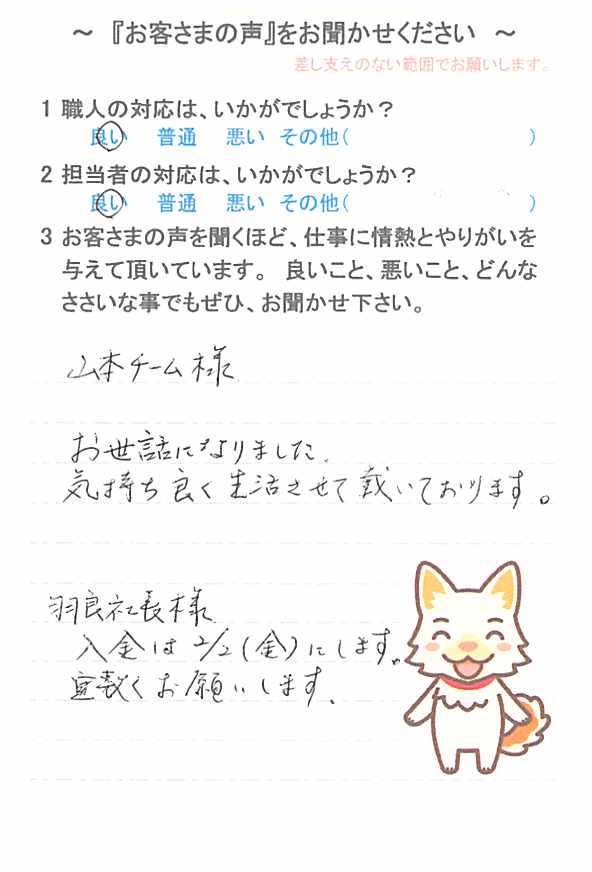 ～ 『お客さまの声』をお聞かせください ～
差し支えのない範囲でお願いします。
1 職人の対応は、いかがでしょうか？
良い 普通 悪い その他( )
2 担当者の対応は、いかがでしょうか？
良い 普通 悪い その他( )
3 お客さまの声を聞くほど、仕事に情熱とやりがいを
与えて頂いています。 良いこと、悪いこと、どんな
ささいな事でもぜひ、お聞かせ下さい。
山本チーム様
お世話になりました.
気持ち良く生活させて戴いております。
羽良社長様
入金は2/2(金)にします。
宜敷くお願いします.